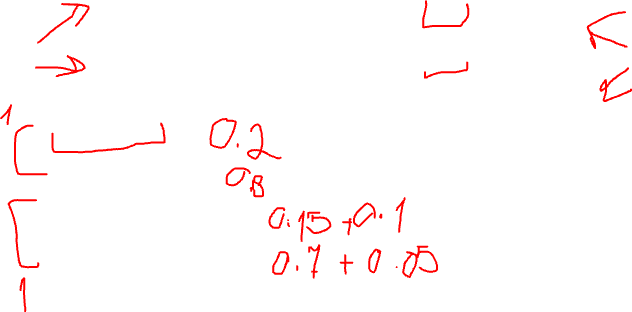 1
0.2
0.8
0.15 + 0.1
0.7 + 0.05
1